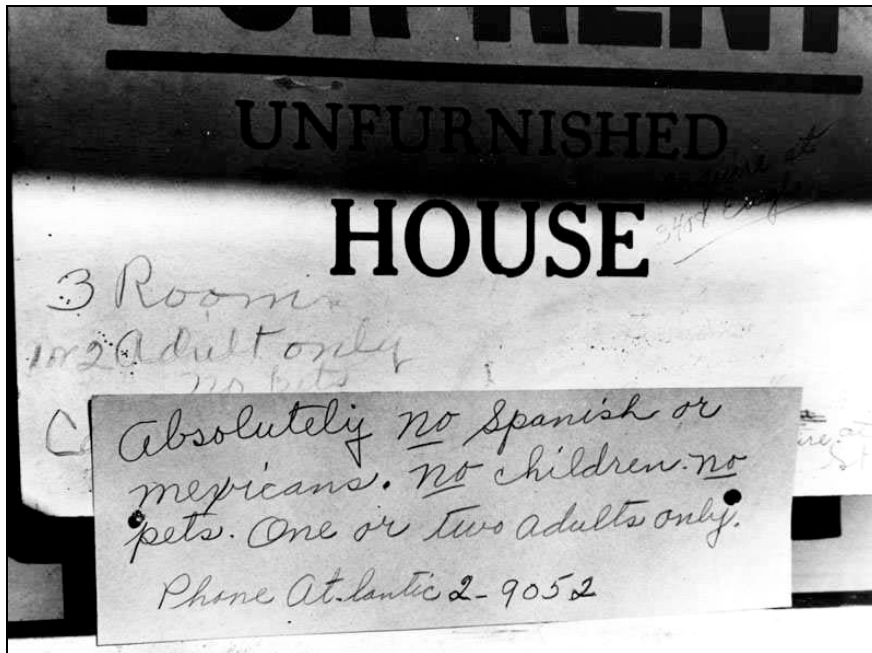 FOR RENT
UNFURNISHED
HOUSE
Inquire at
3408 Eagle
3 Room
1 or 2 Adult only
no pets
Absolutely no Spanish or
mexicans. no children. no
pets. One or two adults only.
Phone At.lantic 2-9052